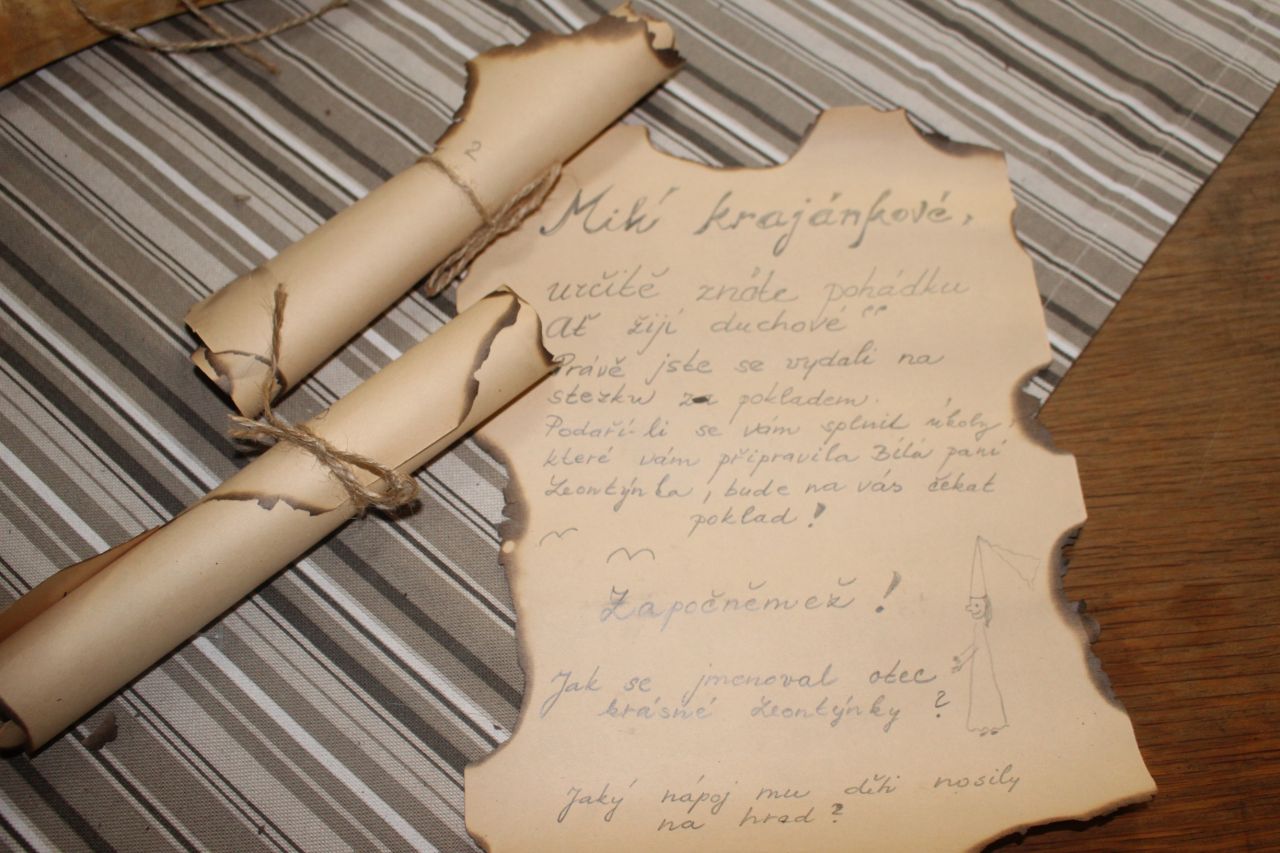 2
Milí krajánkové,
určitě znáte pohádku
Ať žijí duchové"
Právě jste se vydali na
stezku za pokladem.
Podaří-li se vám splnit úkoly,
které vám připravila Bílá paní
Leontýnka, bude na vás čekat
poklad!
Započněmež!
Jak se jmenoval otec
krásné Leontýnky?
Jaký nápoj mu děti nosily
na hrad?